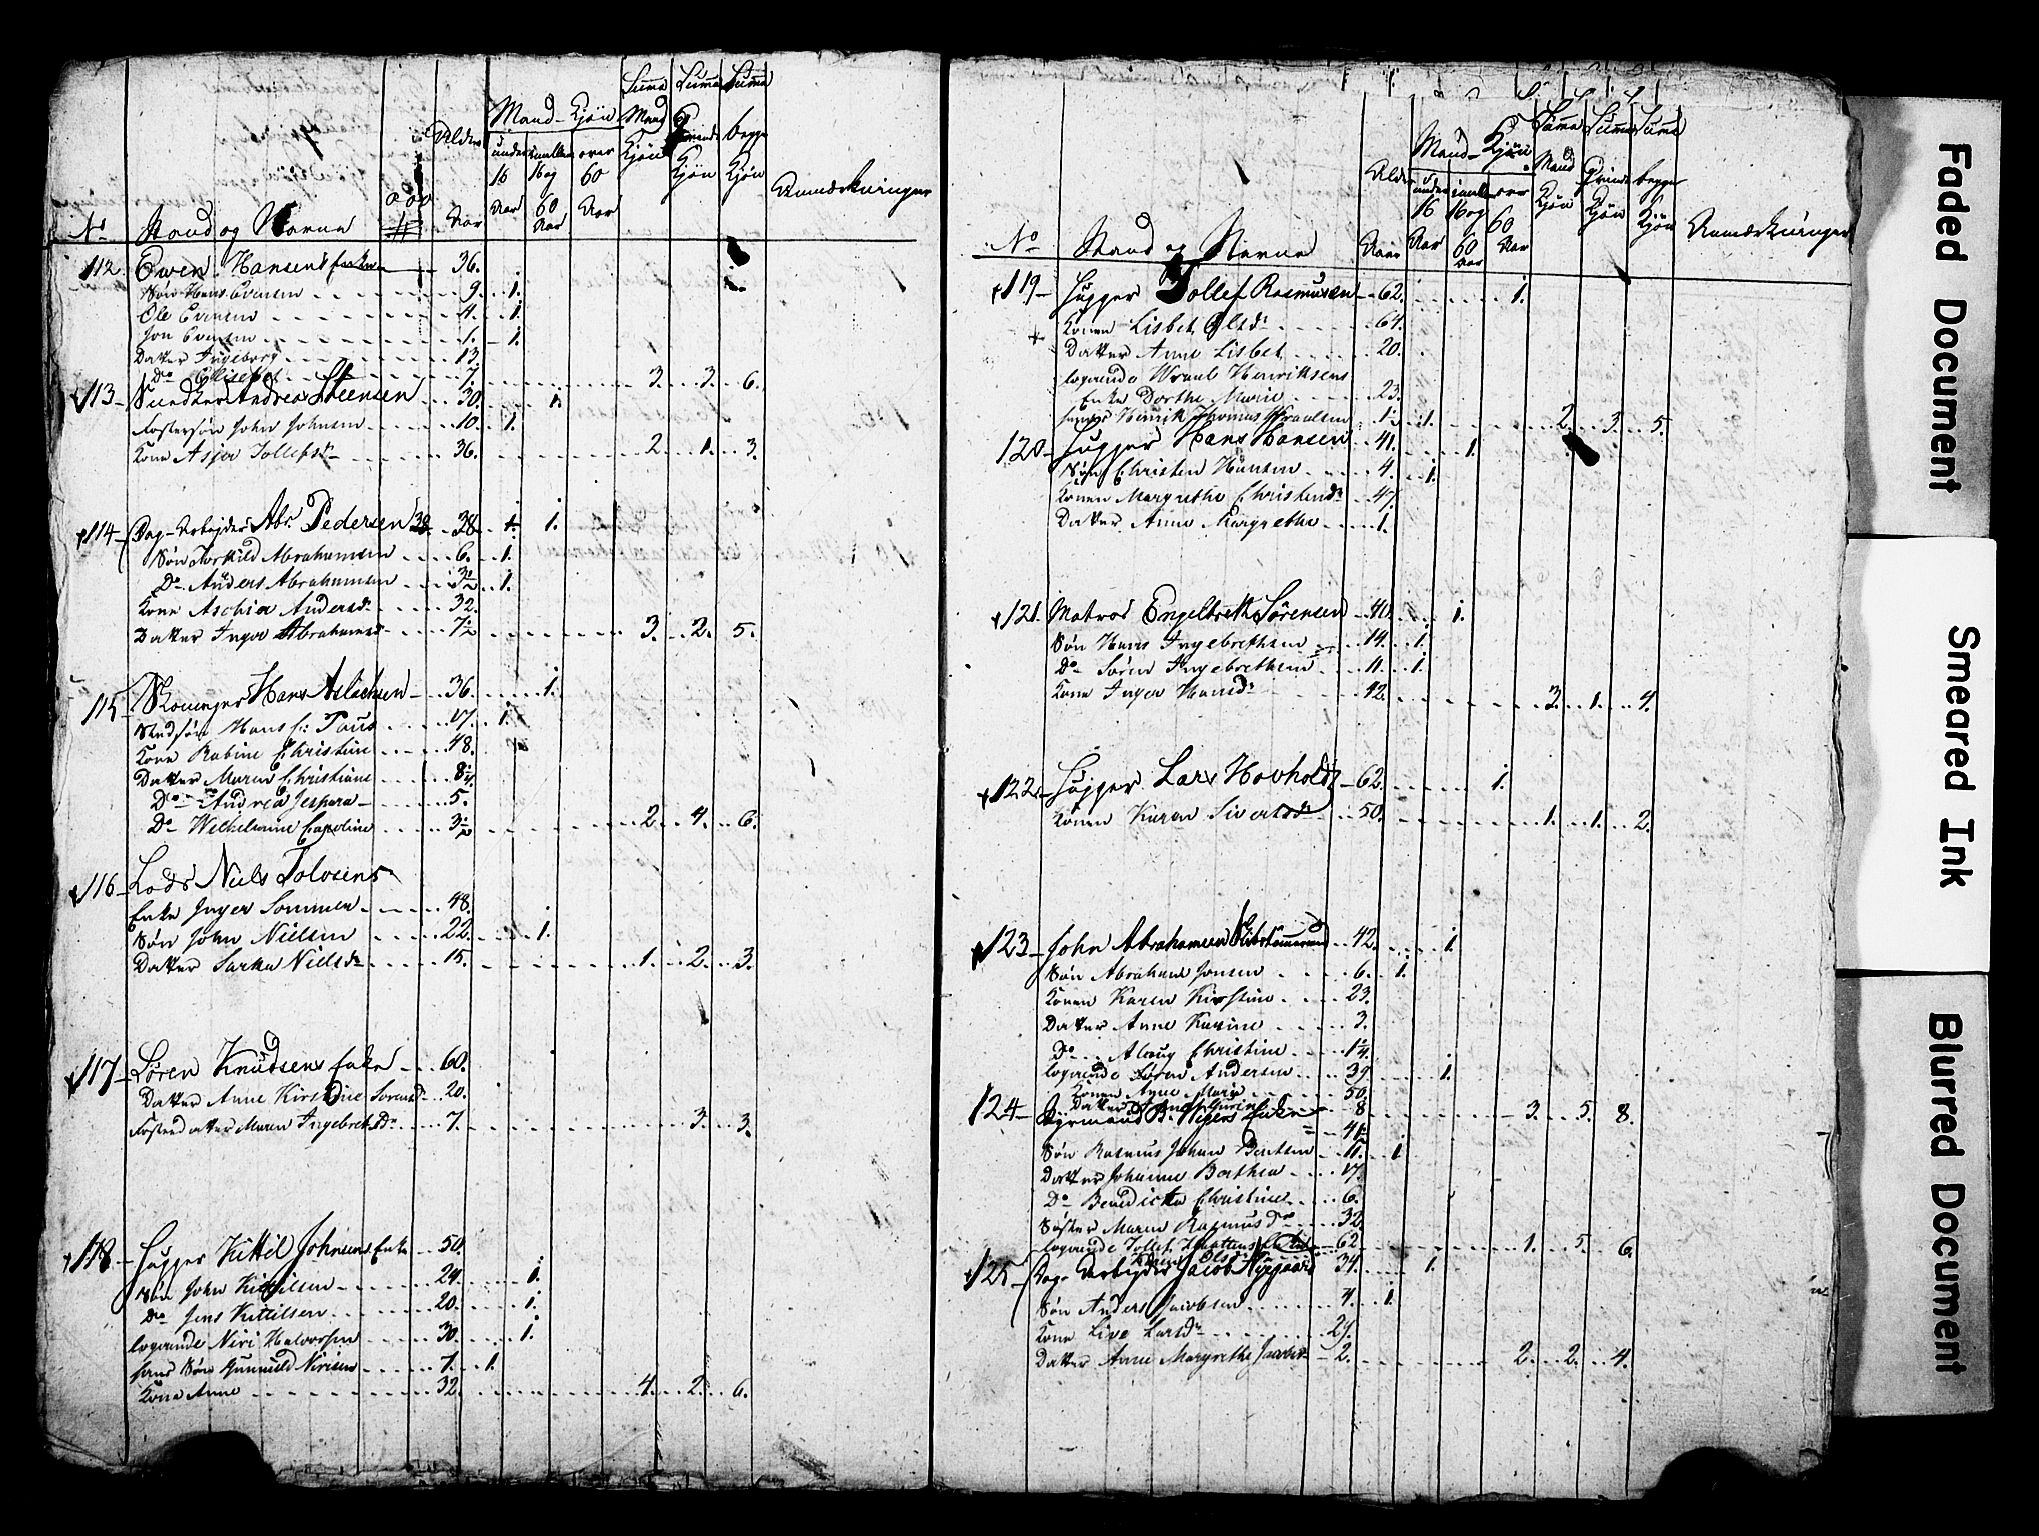 No Stand og Navne
Alder Aar
Mand-Kjøn
under 16 Aar
imellem 16 og 60 Aar
over 60 Aar
Summa Mand Kjøn
Summa Qvinde Kjøn
Summa begge Kjøn
Anmærkninger
112 Even Hansens Enke 36.
Søn Hans Evensen 9. 1.
Ole Evensen 4. 1.
Jon Evensen 1. 1.
Datter Ingeborg 13
Do Elisebet 7. 3. 3. 6.
113 Andreas Steensen 30. 1.
Fostersøn John Johnsen 10. 1.
Kone Asjer Tollefsdr 36. 2. 1. 3.
114 Dag-Arbejder Abr. Pedersen 38 38 1. 1.
Søn Torkild Abrahamsen 6. 1.
Do Anders Abrahamsen 3½ 1.
Kone Aschier Andersdr 32.
Datter Inger Abrahamsdr 7½ 3. 2. 5.
115 Hans Aslachsen 36. 1.
Stedsøn Hans Fr: Paus 17. 1.
Kone Rabine Christine 48.
Datter Maren Christiane 8¼
Do Andrea Jespara 5.
Do Wilhelmine Caroline 3½ 2. 4. 6.
116 Lods Niels Tolvsens
Enke Inger Sommer 48.
Søn John Nielsen 22. 1.
Datter Sarha Nielsdr 15. 1. 2. 3.
117 Søren Knudsens Enke 60.
Datter Anne Kirstine Sørensdr 20.
Fosterdatter Maren Ingebretsdr 7. 3. 3.
118 Hugger Kittil Johnsens Enke 50.
Søn John Kittilsen 24. 1.
Do Jens Kittilsen 20. 1.
logerende Niri Halvorsen 30. 1.
hans Søn Gunnuld Nirisen 7. 1.
Kone Anne 32. 4. 2. 6.
No Stand og Navne
Alder Aar
Mand-Kjøn
under 16 Aar
imellem 16 og 60 Aar
over 60 Aar
Summa Mand Kjøn
Summa Qvinde Kjøn
Summa begge Kjøn
Anmærkninger
119 Hugger Tollef Rasmusen 62. 1.
Konen Lisbet Olsdr 64.
Datter Anne Lisbet 20.
logerende Wraal Henriksens
Enke Dorthe Marie 23.
Henrik Thomas Wraalsen 1½ 1. 2. 3. 5.
120 Hugger Hans Hansen 41. 1.
Søn Christen Hansen 4. 1.
Konen Margrethe Christensdr 47.
Datter Anne Margrethe 1.
121 Matros Engelbreth Sørensen 40. 1.
Søn Hans Ingebrethsen 14. 1.
Do Søren Ingebrethsen 11. 1.
Kone Inger Hansdr 42. 3. 1. 4.
122 Hugger Lars Hovholdt 62. 1.
Konen Karen Sivertsdr 50. 1. 1. 2.
123 John Abrahamsen Skibstømmermd 42. 1.
Søn Abraham Jonsen 6. 1.
Konen Karen Kirstine 23.
Datter Anne Karine 3.
Do Aloug Christine 1¼
logerende Søren Andersen 39 1.
Konen Anne Marie 50.
Datter 8 3. 5. 8.
124 Styrmand B. Enke 41
Søn Rasmus Johan Bentsen 11. 1
Datter Johanne Berthea 17.
Do Benedicta Christine 6.
Søster Maren Rasmusdr 32
logerende Tollef 62 1. 5. 6.
125 Dag-Arbejder Jacob 34. 1.
Søn Anders Jacobsen 4. 1.
Kone Live Larsdr 24.
Datter Anne Margrethe Jacobsdr 2. 2. 2. 4.
Faded Document
Smeared Ink
Blurred Document